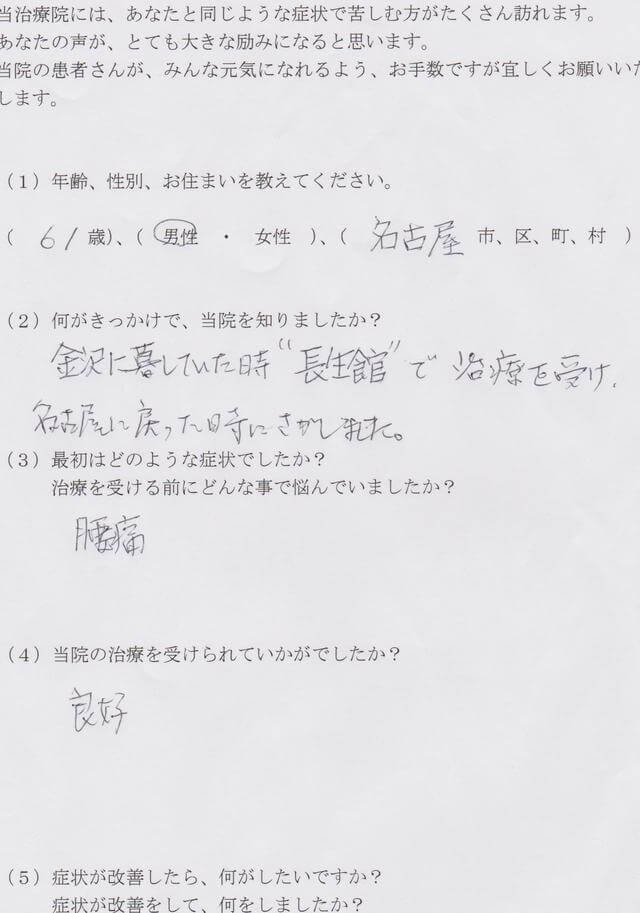 当治療院には、あなたと同じような症状で苦しむ方がたくさん訪れます。
あなたの声が、とても大きな励みになると思います。
当院の患者さんが、みんな元気になれるよう、お手数ですが宜しくお願いいた
します。
(1)年齢、性別、お住まいを教えてください。
( 61歳)、(男性 ・ 女性 )、( 名古屋 市、区、町、村 )
(2)何がきっかけで、当院を知りましたか?
金沢に暮していた時“長生館”で 治療を受け、
名古屋に戻った時にさがしました。
(3)最初はどのような症状でしたか?
治療を受ける前にどんな事で悩んでいましたか?
腰痛
(4)当院の治療を受けられていかがでしたか?
良好
(5)症状が改善したら、何がしたいですか?
症状が改善をして、何をしましたか?